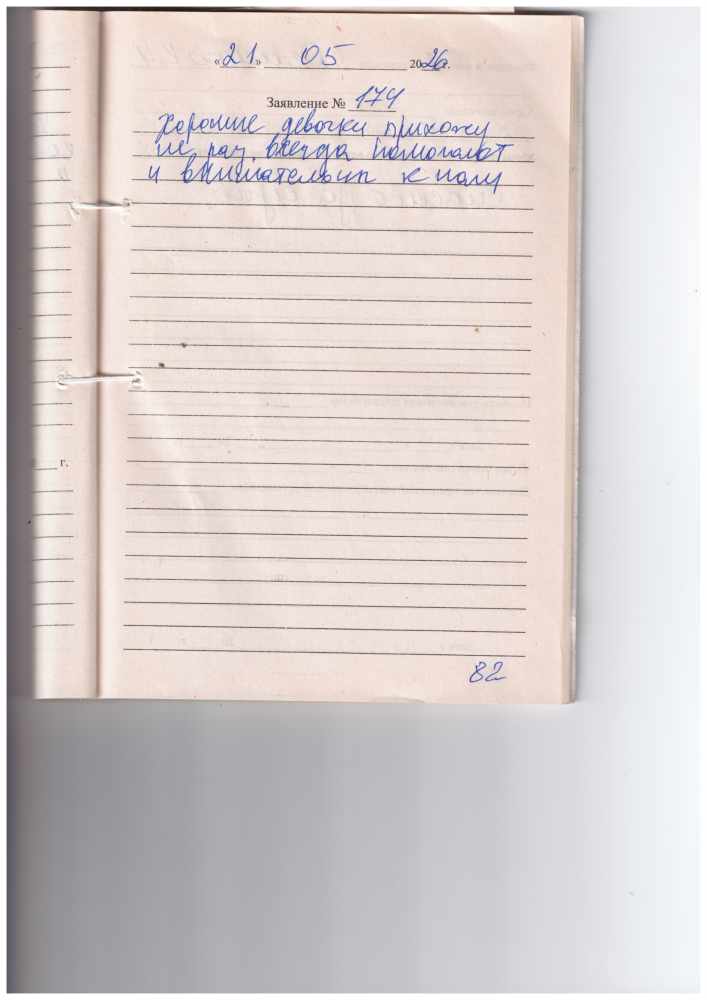 «21» 05 2026г.
Заявление № 174
Хорошие девочки прихожу
не раз, всегда помогают
и внимательны к нам
г.
82